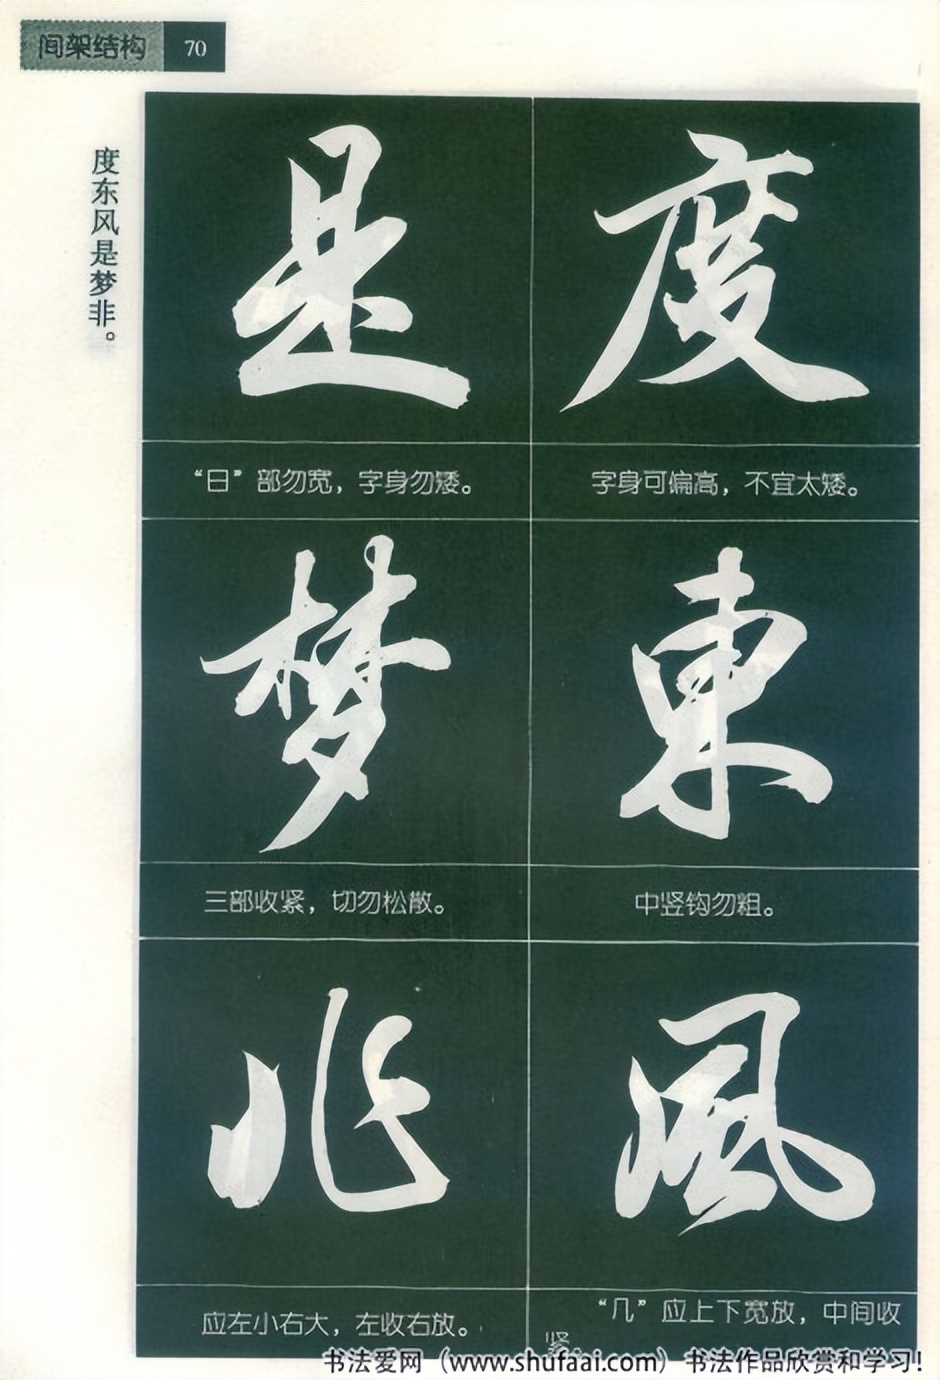 间架结构 70
度东风是梦非。
度
字身可偏高，不宜太矮。
東
中竖钩勿粗。
風
“几”应上下宽放，中间收
紧。
是
“日”部勿宽，字身勿矮。
梦
三部收紧，切勿松散。
非
应左小右大，左收右放。
书法爱网（www.shufaai.com）书法作品欣赏和学习!